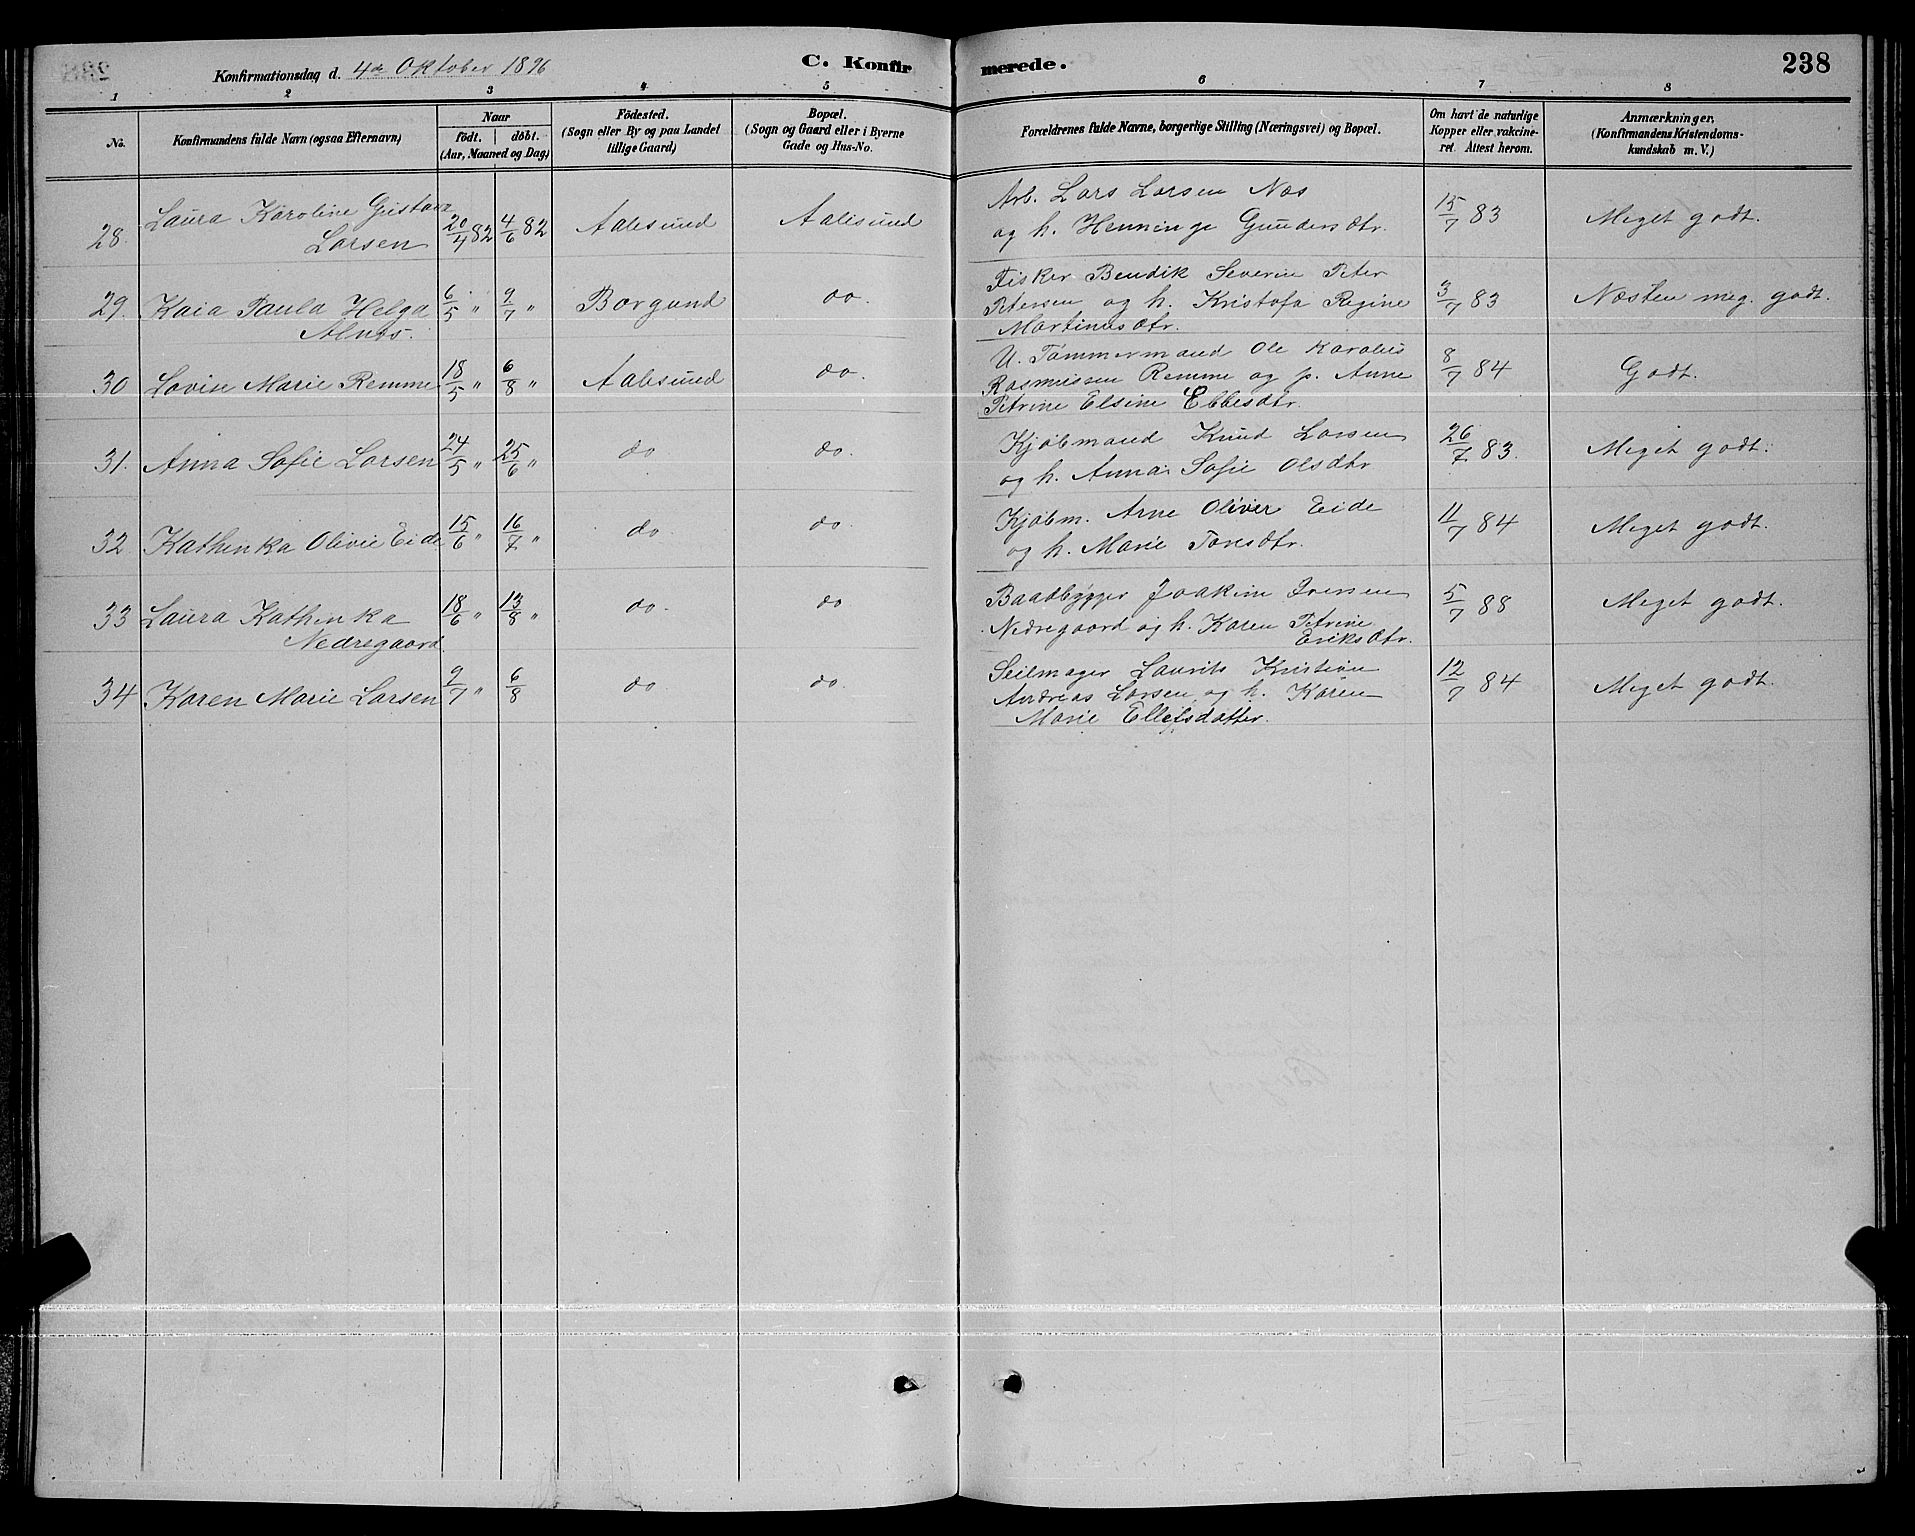 Konfirmationsdag d. 4de Oktober 1896
C. Konfirmerede.
238
1 2 3 4 5 6 7 8
No.
Konfirmandens fulde Navn (ogsaa Efternavn)
Naar
födt. döbt.
(Aar, Maaned og Dag)
Födested.
(Sogn eller By og paa Landet
tillige Gaard)
Bopæl.
(Sogn og Gaard eller i Byerne
Gade og Hus-No.
Forældrenes fulde Navne, borgerlige Stilling (Næringsvei) og Bopæl.
Om havt de naturlige
Kopper eller vakcine-
ret. Attest herom.
Anmærkninger.
(Konfirmandens Kristendoms-
kundskab m. V.)
28. Laura Karoline Gustava
Larsen 20/4 82 4/6 82 Aalesund Aalesund
Arb. Lars Larsen Næs
og h. Henninge Gundersdtr. 15/7 83 Meget godt.
29. Kaia Paula Helga
Alnæs. 6/5 " 9/7 " Borgund do.
Fisker Bendik Severin Peter
Petersen og h. Kristofa Regine
Martinusdtr. 3/7 83 Næsten meg. godt.
30 Lovin Marie Remme 18/5 " 6/8 " Aalesund do.
U. Tømmermand Ole Karolus
Rasmussen Remme og p. Anne
Petrine Elsine Ebbesdtr. 8/7 84 Godt.
31. Anna Sofie Larsen 24/5 " 25/6 " do do.
Kjøbmand Knud Larsen
og h. Anna Sofie Olsdtr 26/7 83. Meget godt.
32 Kathinka Olivie Eide 15/6 " 16/7 " do. do
Kjøbm. Arne Oliver Eide
og h. Marie Tonsdtr. 11/7 84 Meget godt.
33 Laura Kathinka
Nedregaard 18/6 " 13/8 " do. do
Baadbygger Joakim Iversen
Nedregaard og h. Karen Petrine
Eriksdtr. 5/7 88 Meget godt.
34 Karen Marie Larsen 9/7 " 6/8 do do.
Seilmager Laurits Kristian
Andreas Larsen og h. Karen
Marie Ellefsdatter. 12/7 84 Meget godt.